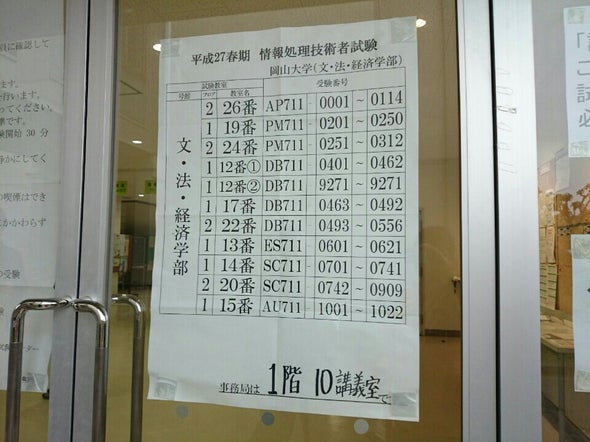 員に確認して
ます。
を行います。
ってください。
準です。
験開始 30 分
静かにしてく
の喫煙はでき
にかかわらず
の受験
平成27春期 情報処理技術者試験
岡山大学(文・法・経済学部)
号館 試験教室 受験番号
フロア 教室名
文・法・経済学部
2 26番 AP711 - 0001 ~ 0114
1 19番 PM711 - 0201 ~ 0250
2 24番 PM711 - 0251 ~ 0312
1 12番① DB711 - 0401 ~ 0462
1 12番② DB711 - 9271 ~ 9271
1 17番 DB711 - 0463 ~ 0492
2 22番 DB711 - 0493 ~ 0556
1 13番 ES711 - 0601 ~ 0621
1 14番 SC711 - 0701 ~ 0741
2 20番 SC711 - 0742 ~ 0909
1 15番 AU711 - 1001 ~ 1022
事務局は 1階 10講義室で
こ
試
必